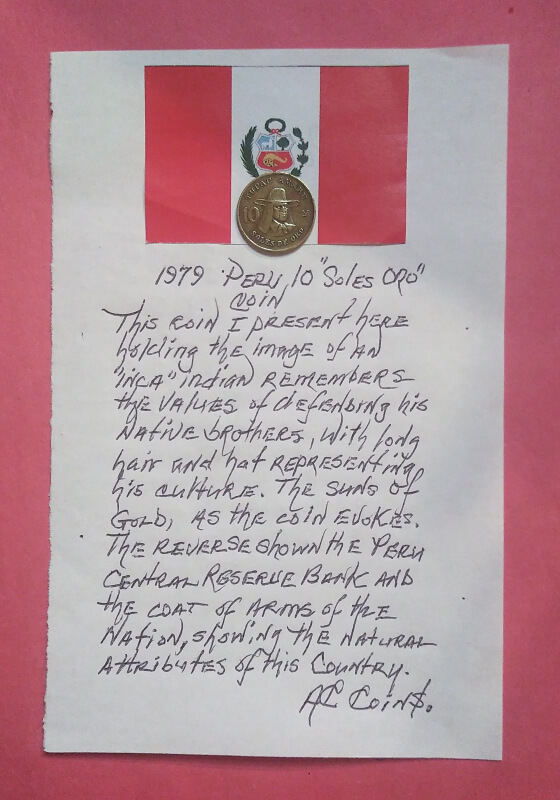 TUPAC AMARU
10
SOLES DE ORO
1979 PERU 10 "Soles ORO"
COIN
This coin I present here
holding the image of AN
"INCA" indian REMEMBERS
the VALUES of defending his
NATIVE brothers, with long
hair and hat REPRESENTING
his CULTURE. The SUNS of
GOLD, AS the COIN EVOKES.
The REVERSE shown the PERU
CENTRAL RESERVE BANK AND
the COAT of ARMS of the
NATION, showing the NATURAL
Attributes of this COUNTRY.
AC COIN$.